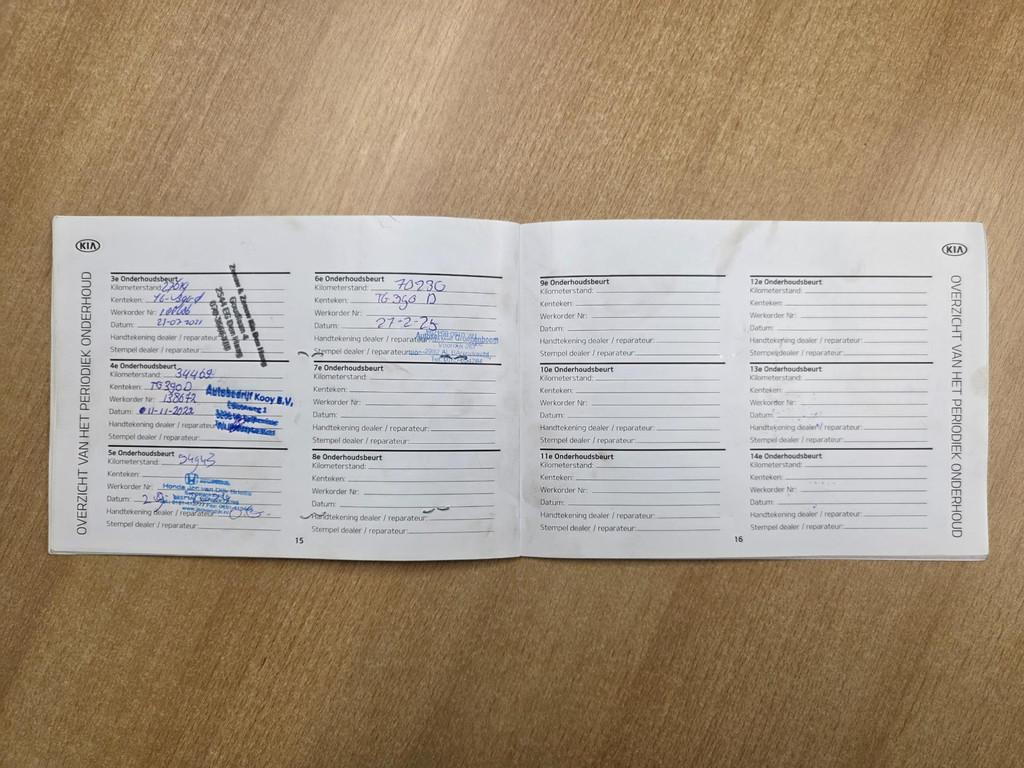 KIA
OVERZICHT VAN HET PERIODIEK ONDERHOUD
3e Onderhoudsbeurt
Kilometerstand:
Kenteken:
Werkorder Nr:
Datum: 21-07-2021
Handtekening dealer / reparateur:
Stempel dealer / reparateur:
4e Onderhoudsbeurt
Kilometerstand: 34469
Kenteken: TG390D
Werkorder Nr: 138672
Datum: 11-11-2022
Handtekening dealer / reparateur:
Stempel dealer / reparateur:
Autobedrijf Kooy B.V.
5e Onderhoudsbeurt
Kilometerstand:
Kenteken:
Werkorder Nr:
Datum:
Handtekening dealer / reparateur:
Stempel dealer / reparateur:
15
6e Onderhoudsbeurt
Kilometerstand: 70230
Kenteken: TG 390 D
Werkorder Nr:
Datum: 27-2-25
Handtekening dealer / reparateur:
Stempel dealer / reparateur:
7e Onderhoudsbeurt
Kilometerstand:
Kenteken:
Werkorder Nr:
Datum:
Handtekening dealer / reparateur:
Stempel dealer / reparateur:
8e Onderhoudsbeurt
Kilometerstand:
Kenteken:
Werkorder Nr:
Datum:
Handtekening dealer / reparateur:
Stempel dealer / reparateur:
9e Onderhoudsbeurt
Kilometerstand:
Kenteken:
Werkorder Nr:
Datum:
Handtekening dealer / reparateur:
Stempel dealer / reparateur:
10e Onderhoudsbeurt
Kilometerstand:
Kenteken:
Werkorder Nr:
Datum:
Handtekening dealer / reparateur:
Stempel dealer / reparateur:
11e Onderhoudsbeurt
Kilometerstand:
Kenteken:
Werkorder Nr:
Datum:
Handtekening dealer / reparateur:
Stempel dealer / reparateur:
16
12e Onderhoudsbeurt
Kilometerstand:
Kenteken:
Werkorder Nr:
Datum:
Handtekening dealer / reparateur:
Stempel dealer / reparateur:
13e Onderhoudsbeurt
Kilometerstand:
Kenteken:
Werkorder Nr:
Datum:
Handtekening dealer / reparateur:
Stempel dealer / reparateur:
14e Onderhoudsbeurt
Kilometerstand:
Kenteken:
Werkorder Nr:
Datum:
Handtekening dealer / reparateur:
Stempel dealer / reparateur:
KIA
OVERZICHT VAN HET PERIODIEK ONDERHOUD